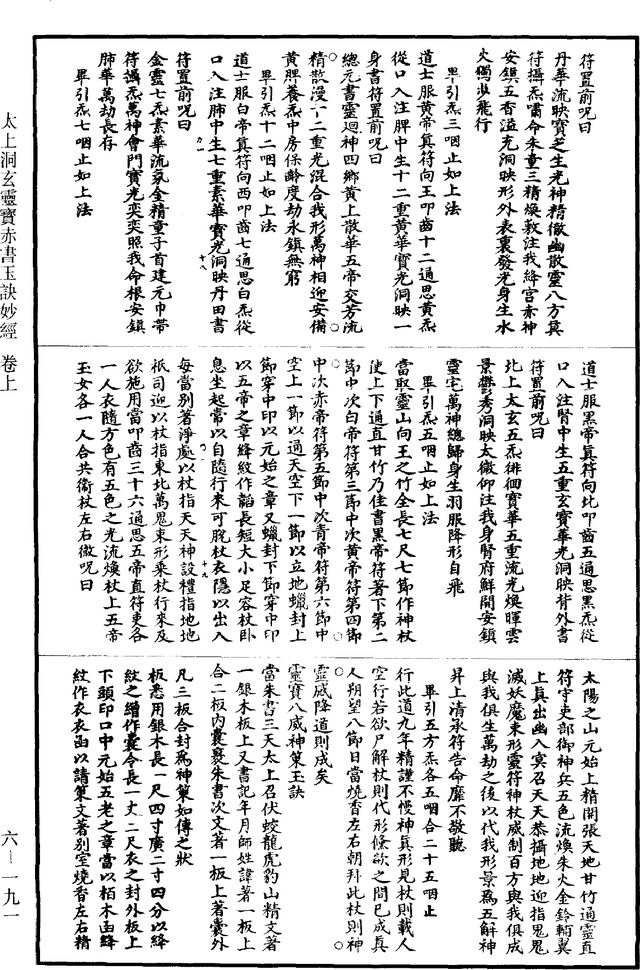 符置前呪曰
丹華流映寶芝生光神精徹幽散靈八方真
符攝炁嘯命朱童三精煥敷注我絳宫赤神
安鎮五香溢充洞映形外表裏發光身生水
火獨步飛行
畢引炁三咽止如上法
道士服黄帝真符向王叩齒十二通思黄炁
從口入注脾中生十二重黄華寶光洞映一
身書符置前呪曰
總元書靈迴神四鄉黄上散華五帝交芳流
精散漫一二重光混合我形萬神相迎安備
黄脾養炁中房保齡度劫永鎮無窮
畢引炁十二咽止如上法
道士服白帝真符向西叩齒七通思白炁從
口入注肺中生七重素華寶光洞映丹田書
十八
符置前呪曰
金靈七炁素華流氛金精童子首建元巾帶
符攝炁萬神會門寶光奕奕照我命根安鎮
肺華萬劫長存
畢引炁七咽止如上法
道士服黑帝真符向北叩齒五通思黑炁從
口入注腎中生五重玄寶華光洞映背外書
符置前呪曰
北上太玄五炁徘徊寶華五重流光煥暉雲
景鬱秀洞映太微仰注我身腎府鮮開安鎮
靈宅萬神總歸身生羽服降形自飛
畢引炁五咽止如上法
當取靈山向王之竹全長七尺七節作神杖
使上下通直甘竹乃佳書黑帝符著下第二
節中次白帝符第三節中次黄帝符第四節
中次赤帝符第五節中次青帝符第六節中
空上一節以通天空下一節以立地蠟封上
節穿中印以元始之章又蠟封下節穿中印
以五帝之章絳紋作韜長短大小足容杖卧
息坐起常以自隨行來可脫杖衣隱以出入
十九
每當別著淨處以杖指天天神設禮指地地
祇司迎以杖指東北萬鬼束形乘杖行來及
欲施用當叩齒三十六通思五帝直符吏各
一人衣隨方色有五色之光流煥杖上五帝
玉女各一人合共衛杖左右微呪曰
太陽之山元始上精開張天地甘竹通靈直
符守吏部御神兵五色流煥朱火金鈴輔翼
上真出幽入冥召天天恭攝地地迎指鬼鬼
滅妖魔束形靈符神杖威制百方與我俱成
與我俱生萬劫之後以代我形景為五解神
昇上清承符告命靡不敬聽
畢引五方炁各五咽合二十五咽止
行此道九年精謹不慢神真形見杖則載人
空行若欲尸解杖則代形倏歘之間已成真
人朔望八節日當燒香左右朝拜此杖則神
靈威降道則成矣
靈寶八威神策玉訣
當朱書三天太上召伏蛟龍虎豹山精文著
一銀木板上又書記年月師姓諱著一板上
合二板内囊裹朱書次文著一板上著囊外
凡三板合封為神策如傳之狀
板悉用銀木長一尺四寸廣二寸四分以絳
紋之繒作囊令長一丈二尺衣之封外板上
下頭印口中元始五老之章當以栢木函絳
紋作衣衣函以請策文著别室燒香左右精
太上洞玄靈寶赤書玉訣妙經 卷上
六—一九一